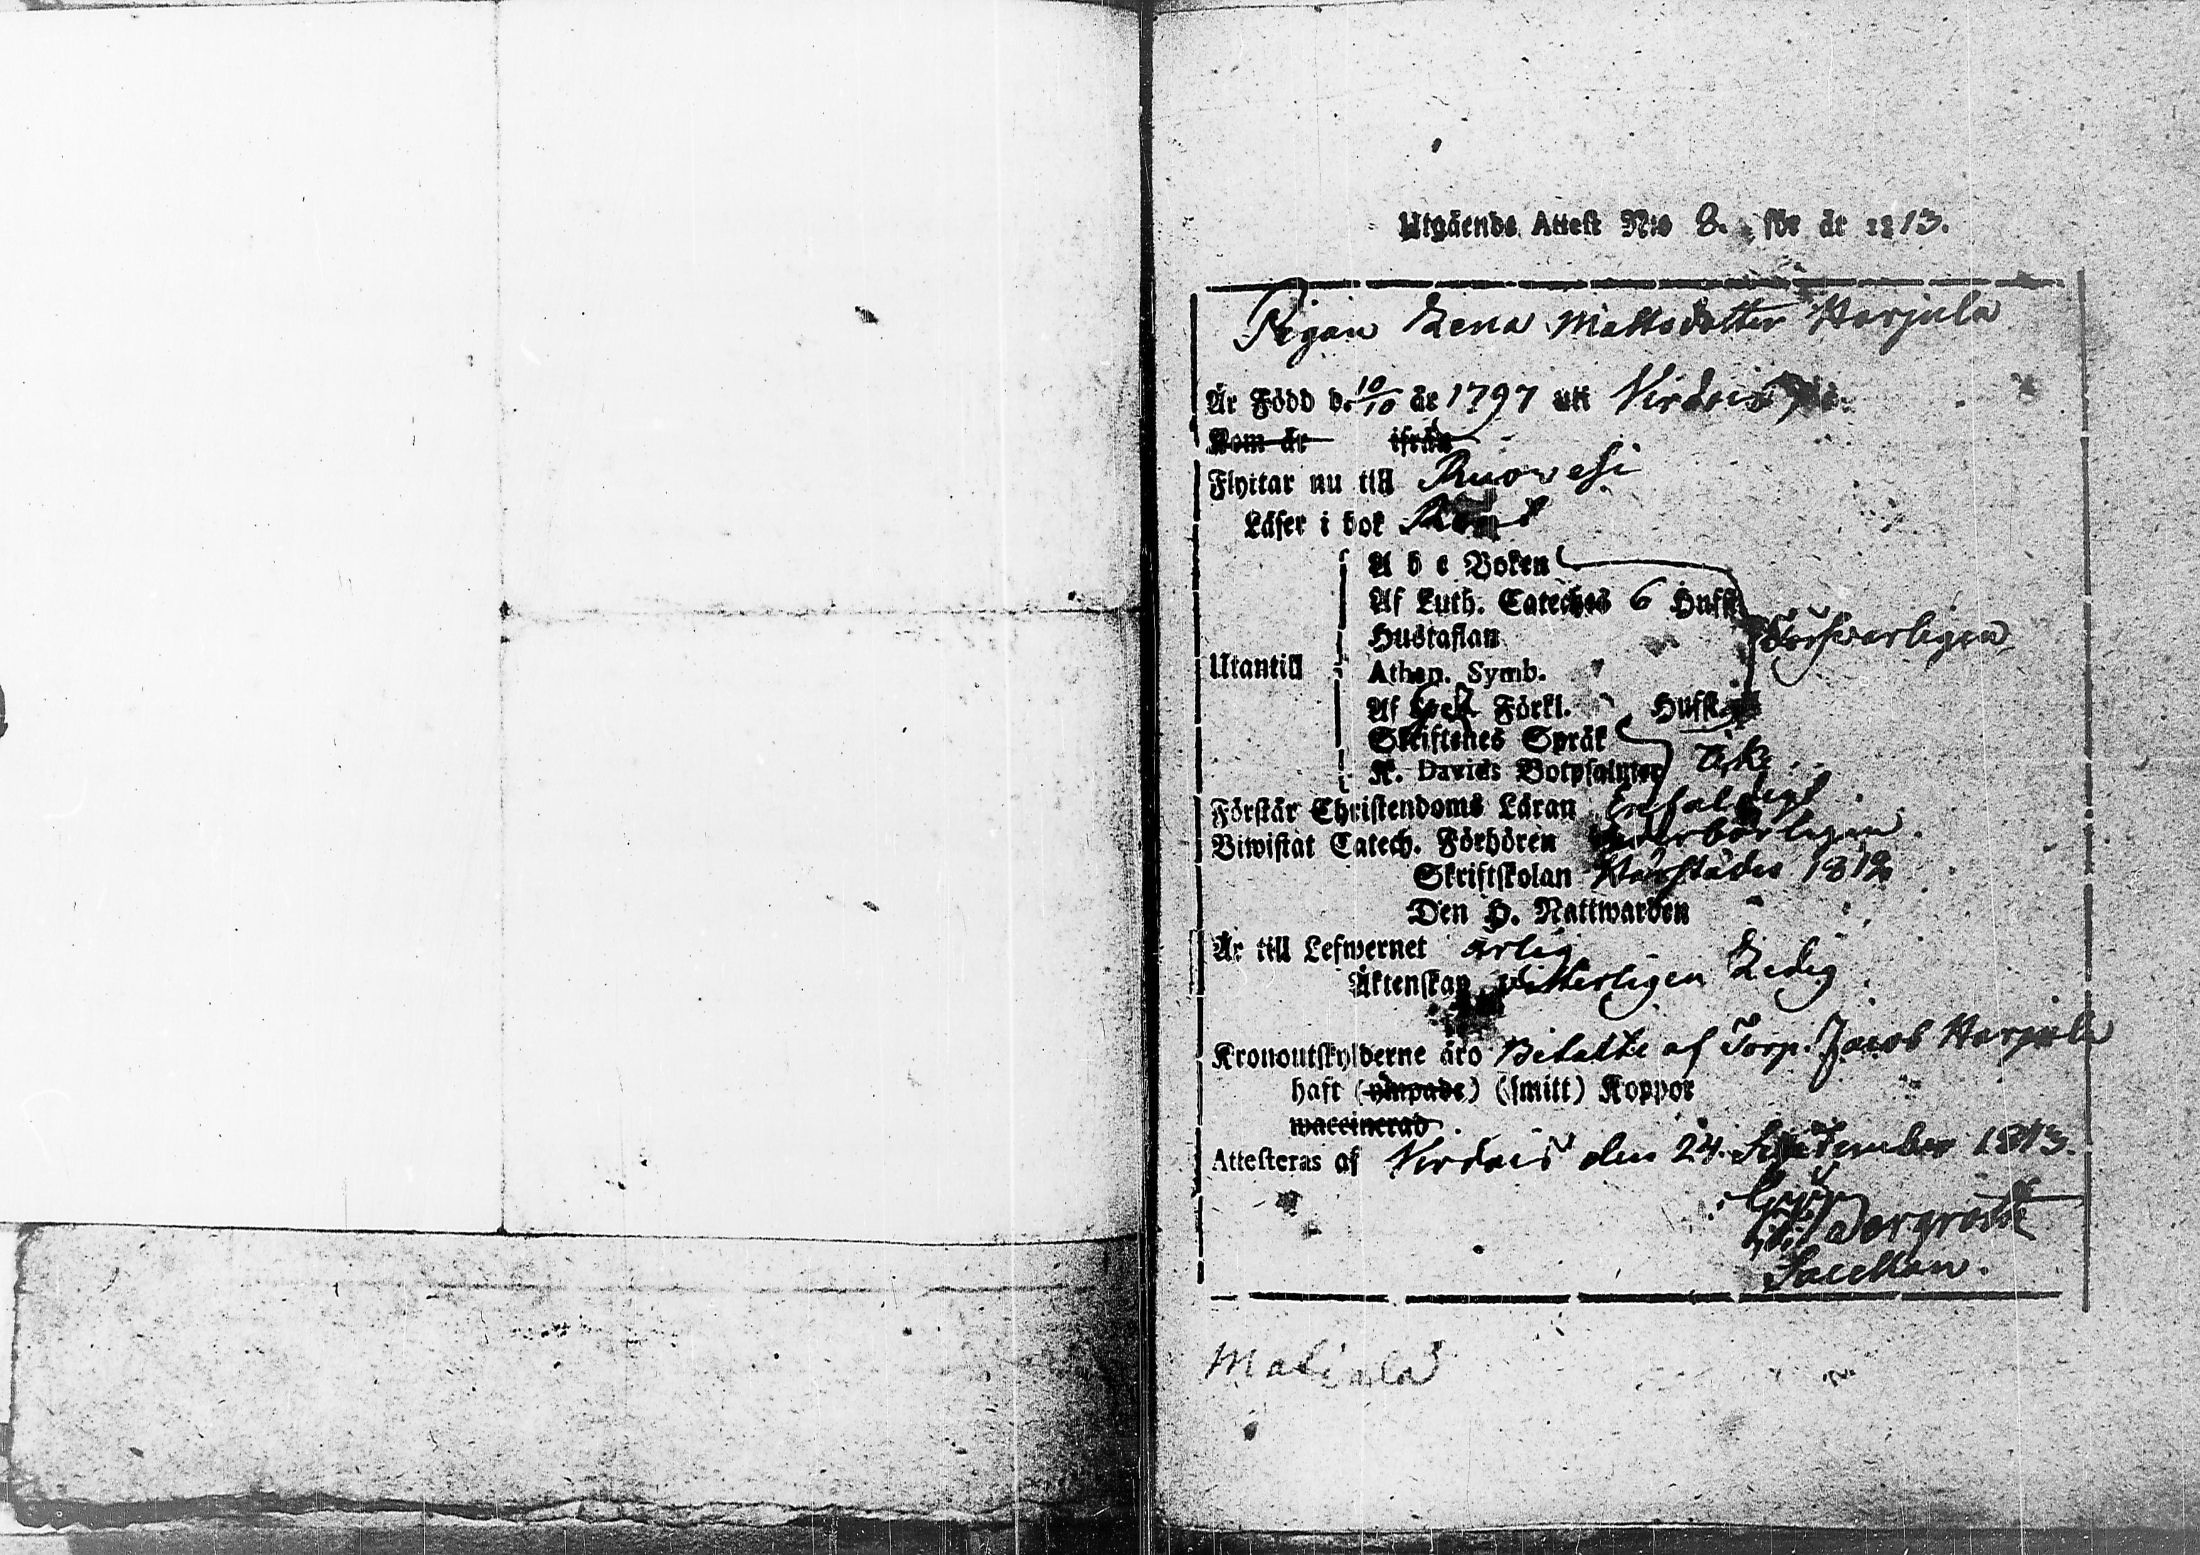 Utgående Attest N:o 8. för år 1813.
Pigan Lena Mattsdotter Harjula
Är Född d. 10/10 år 1797 uti Virdois
Kom år ifrån
Flyttar nu till Ruovesi
Läser i bok
A b c Boken
Af Luth. Cateches 6 Hufst.
Hustaflan Försvarligen
Utantill
Athan. Symb.
Af Förkl. Hufst.
Skriftenes Språk
K. Davids Botpsalmer icke
Förstår Christendoms Läran Enfaldigt
Biwistat Catech. Förhören
Skriftskolan härstädes 1812
Den H. Nattwarden
Är till Lefwernet ärlig
Äktenskap vitterligen Ledig
Kronoutskylderne äro Betalte af Torp. Jacob Harjula
haft (ympade) (smitt) Koppor
waccinerad
Attesteras af Virdois den 24 September 1813.
Bergroth
Sacellan.
Matiala